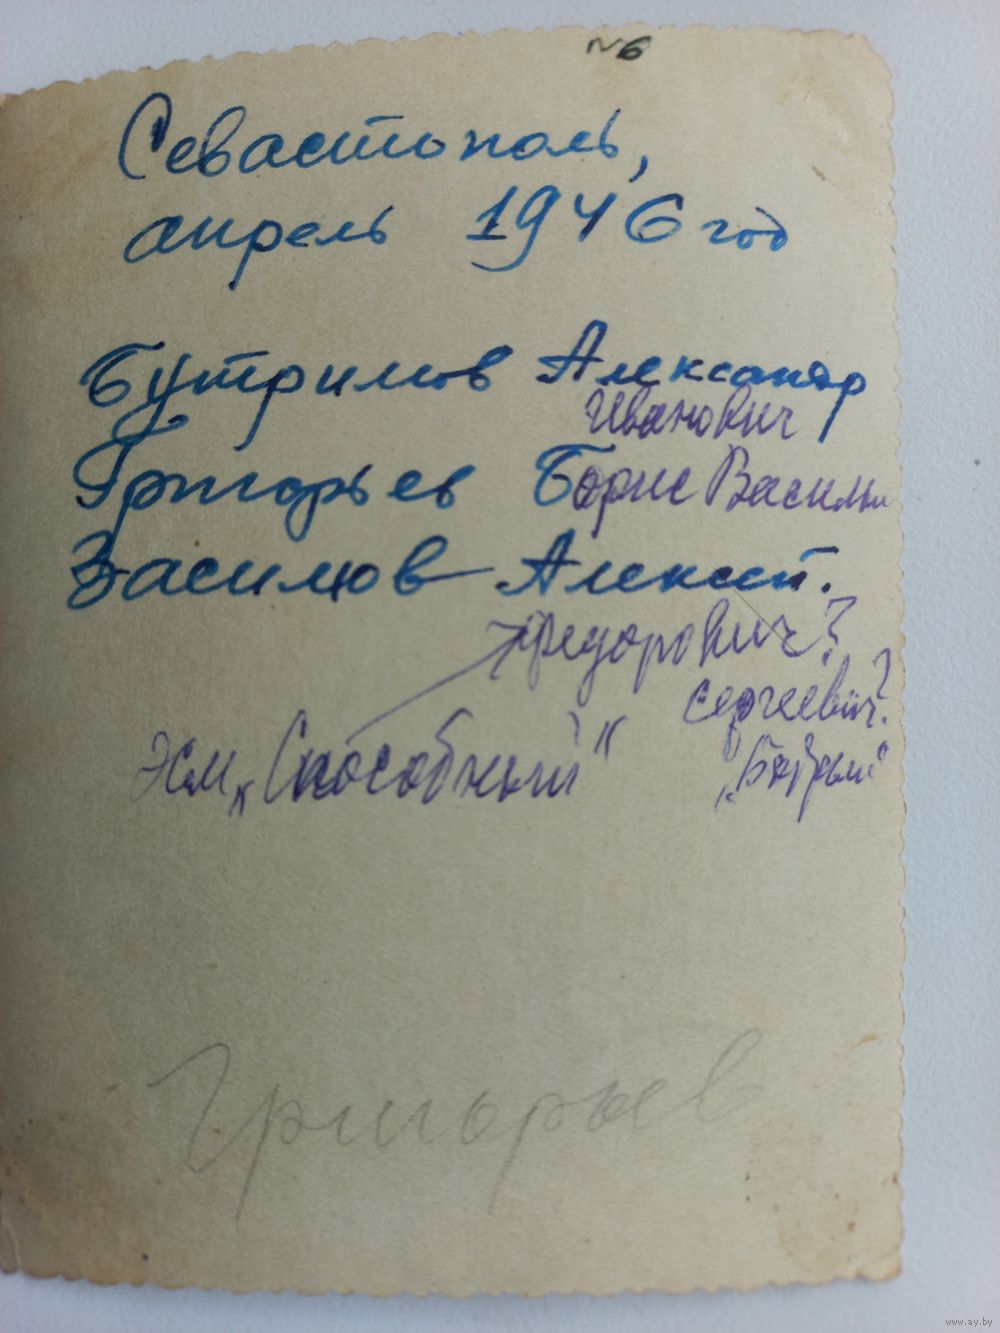 №6
Севастополь,
апрель 1946 год
Бутримов Александр
Иванович
Григорьев Борис Василь
Засимов Алексей.
Федорович?
Сергеевич?
эсм „Способный" „Бодрый"
Григорьев
www.ay.by